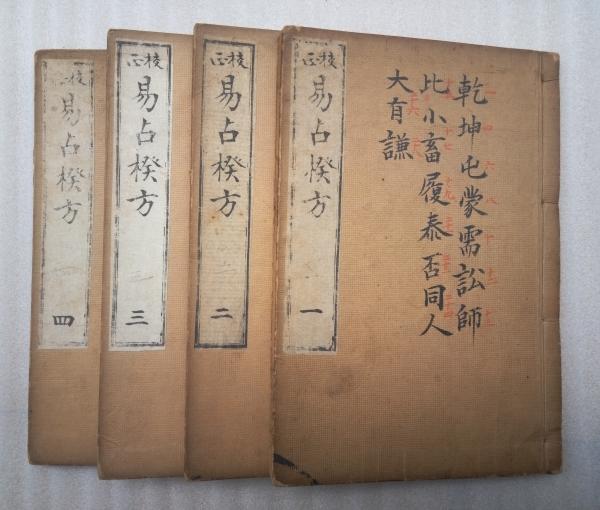 乾坤屯蒙需訟師
比小畜履泰否同人
大有謙
校正
易占楑方
一
校正
易占楑方
二
校正
易占楑方
三
校正
易占楑方
四